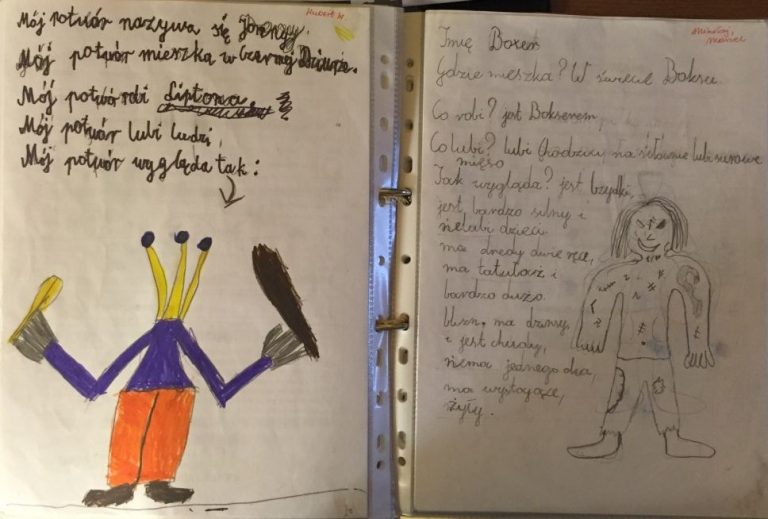 Hubert M.
Mój potwór nazywa się
Mój potwór mieszka w Czarnej Dziurze.
Mój potwór robi Liptona
Mój potwór lubi ludzi,
Mój potwór wygląda tak:
Mikołaj,
Imię Boxer
Gdzie mieszka? W świecie Boksu.
Co robi? jest Bokserem,
Co lubi? lubi chodzić na siłownie lubi surowe
mięso
Jak wygląda? jest brzydki,
jest bardzo silny i
nielubi dzieci
ma dredy dwie ręce,
ma tatuaż i
bardzo dużo
blizn, ma dziury,
i jest chudy,
niema jednego oka,
ma wystające,
żyły.